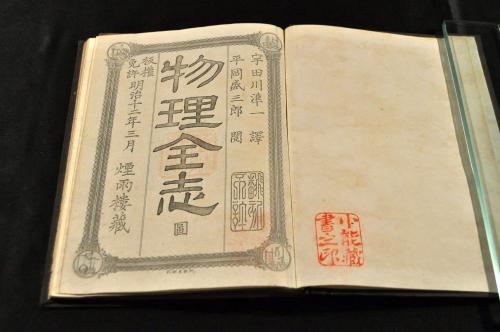 宇田川準一 譯
平岡盛三郎 閲
物理全志 圖
板權
免許 明治十二年三月
煙雨樓藏
小能藏
書之印